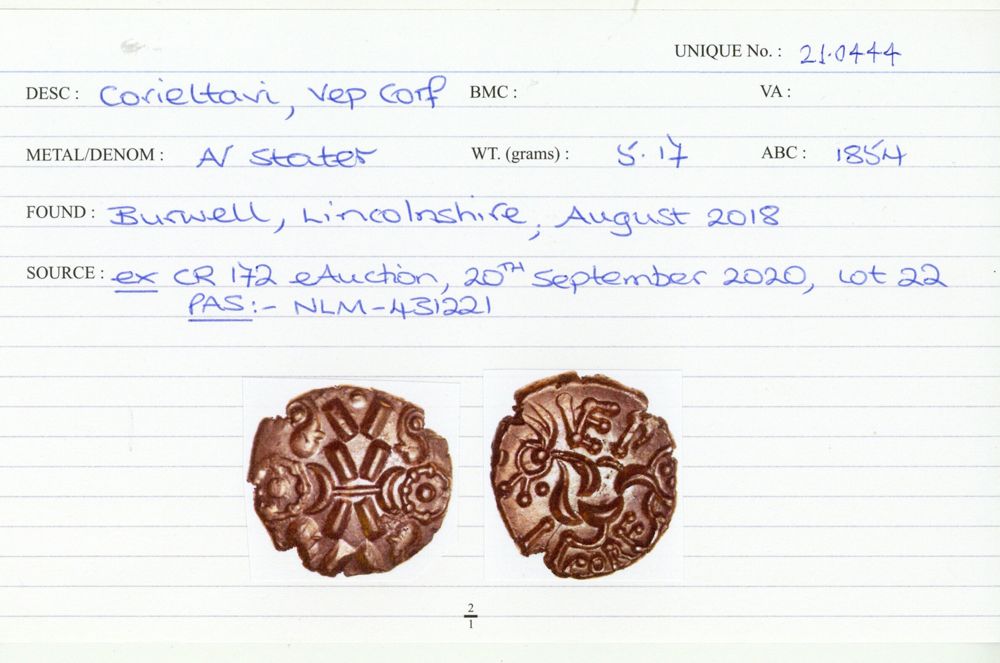 UNIQUE No. : 21.0444
DESC : Corieltavi, Vep Corf BMC : VA :
METAL/DENOM : N Stater WT. (grams) : 5.17 ABC : 1854
FOUND : Burwell, Lincolnshire, August 2018
SOURCE : ex CR 172 eAuction, 20TH September 2020, Lot 22
PAS:- NLM-431221
VEP
CORF
2
1